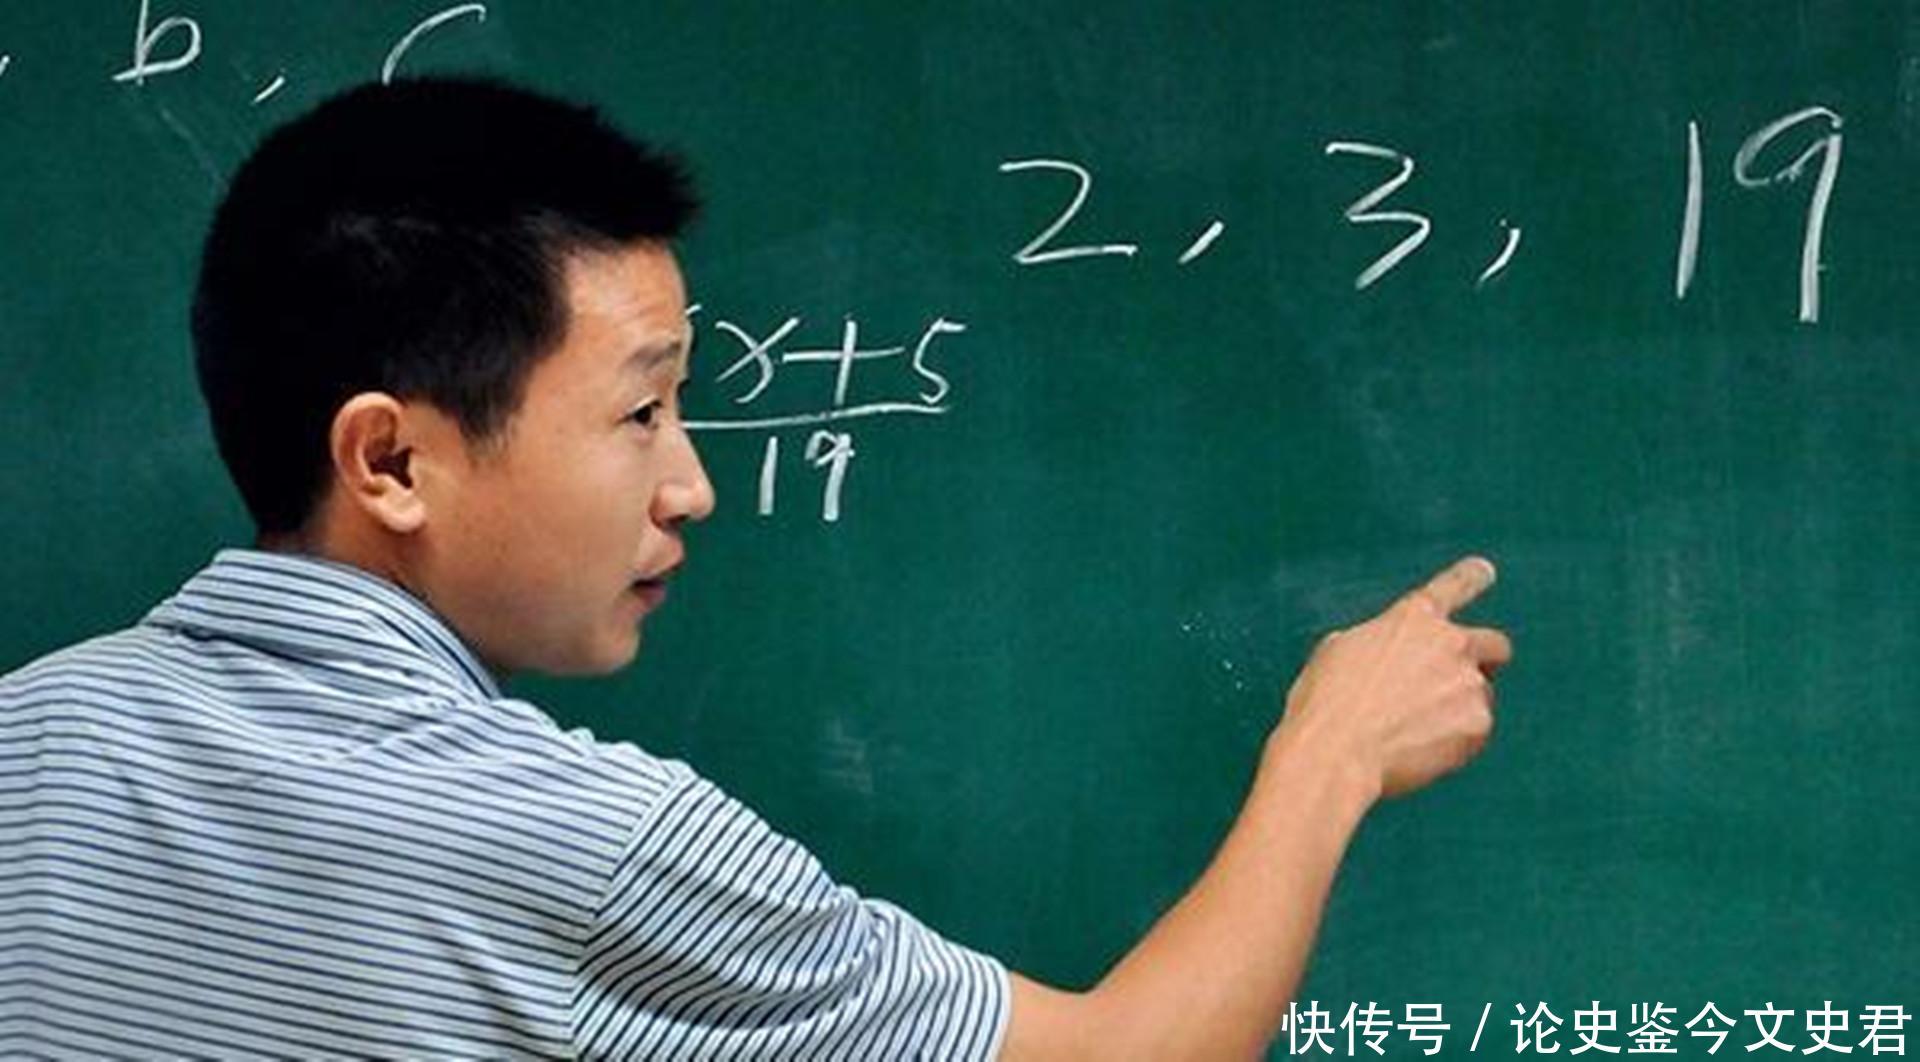 , b, c
2, 3, 19
x+5
19
快传号 / 论史鉴今文史君